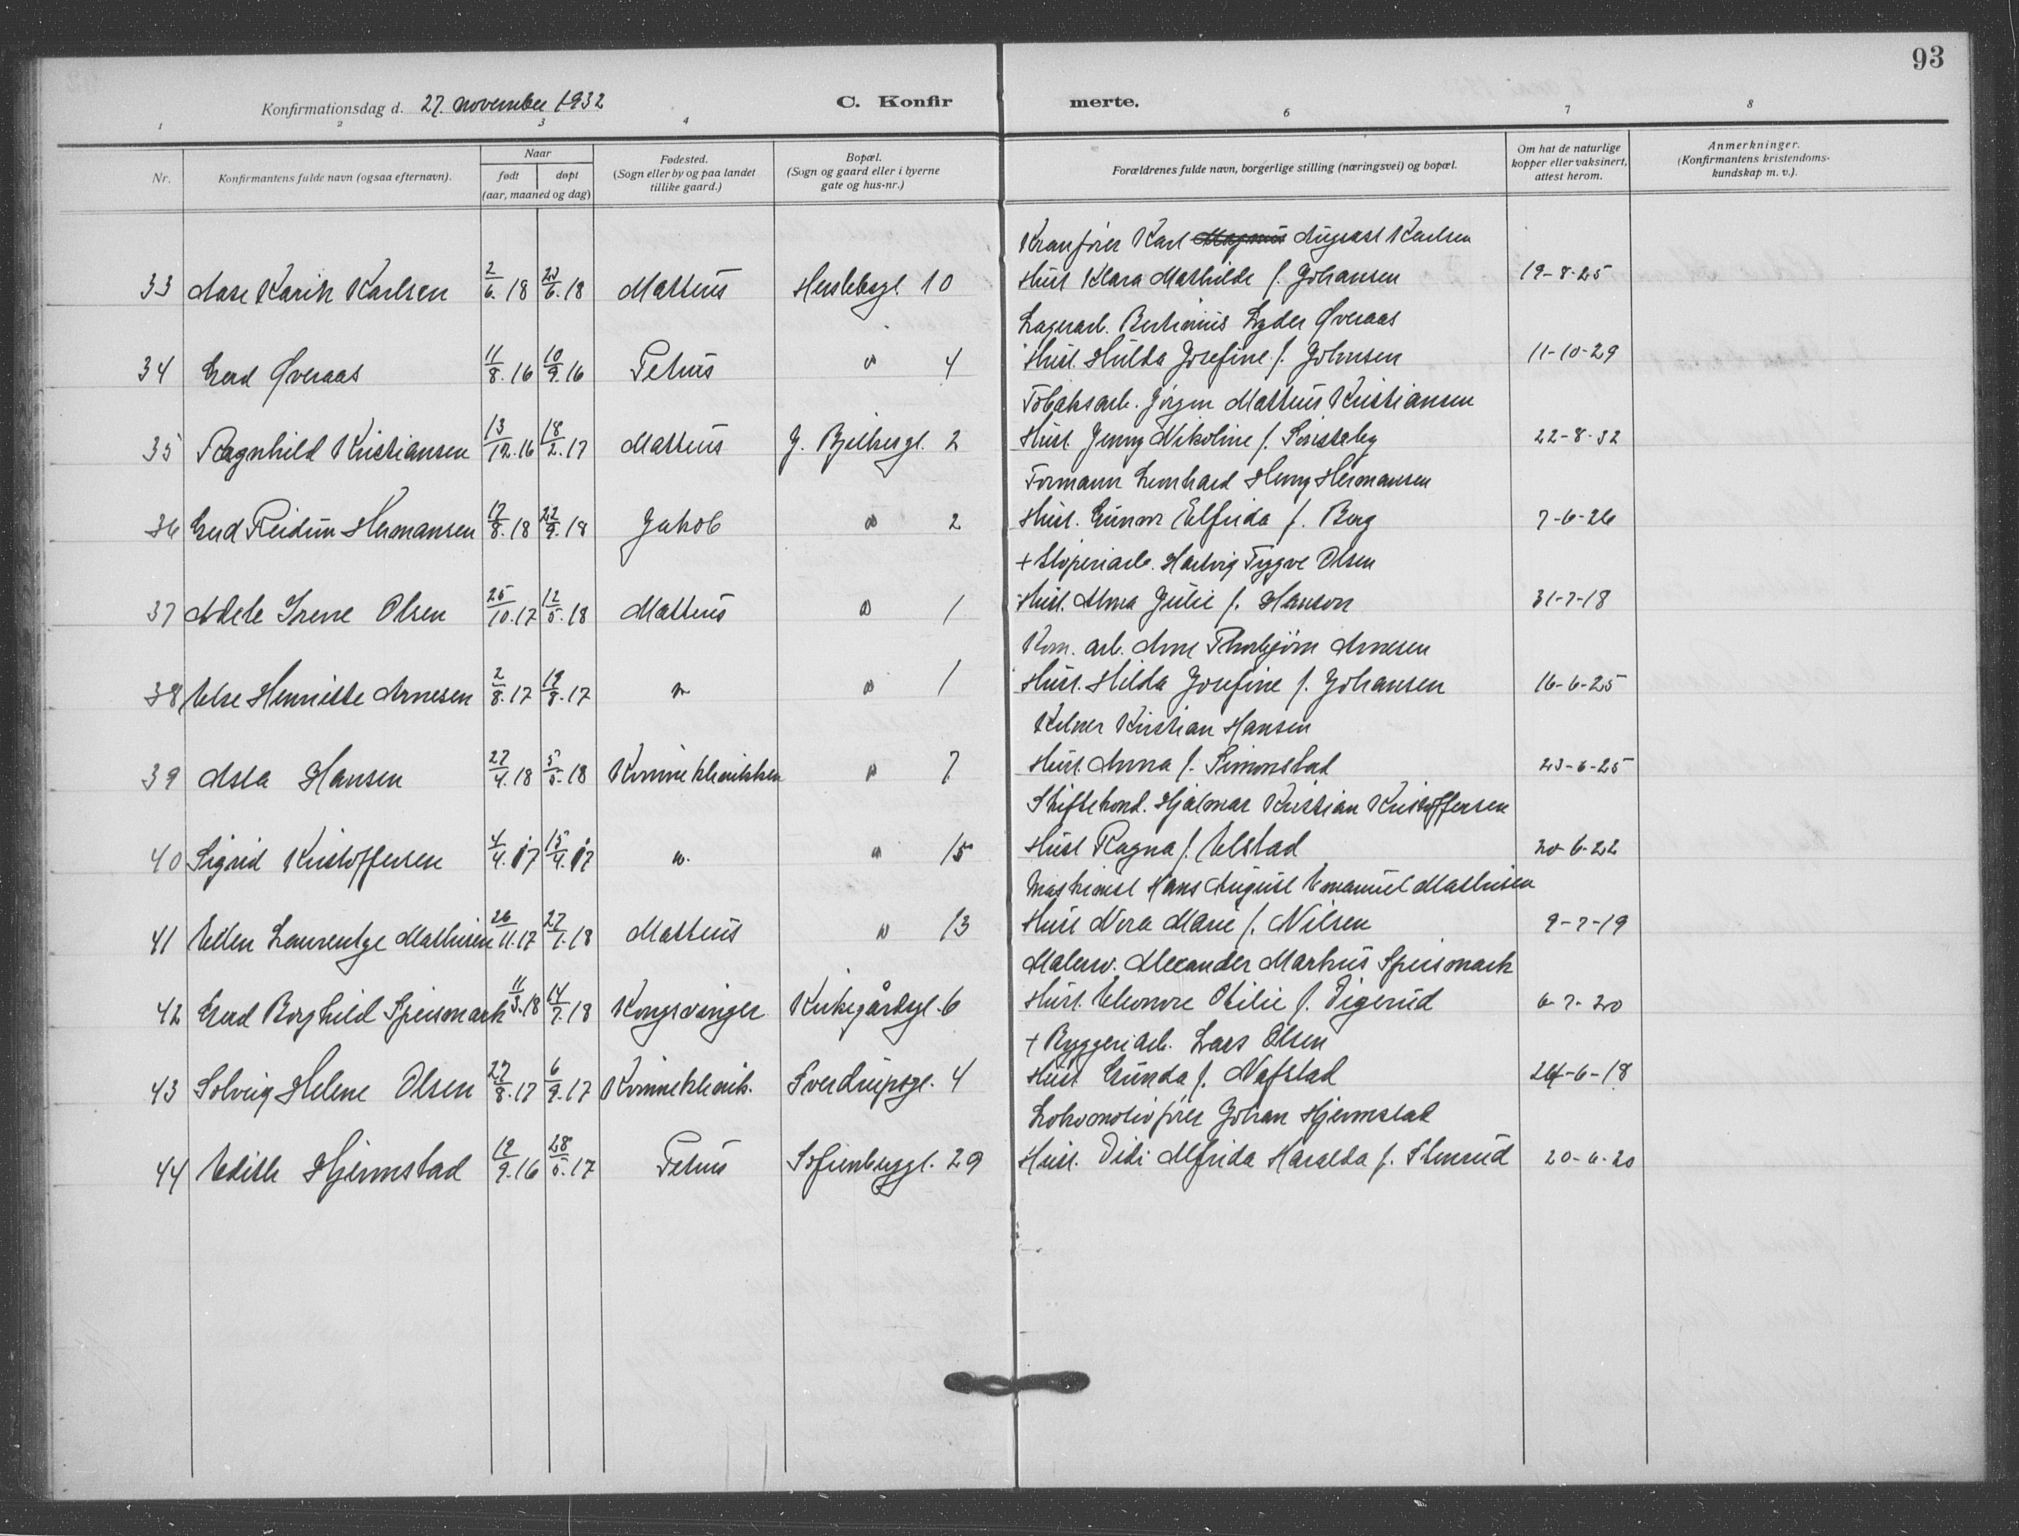 93
Konfirmationsdag d. 27. november 1932
C. Konfir merte.
1 2 3 4 6 7 8
Nr.
Konfirmantens fulde navn (ogsaa efternavn).
Naar
født døpt
(aar, maaned og dag)
Fødested.
(Sogn eller by og paa landet
tillike gaard.)
Bopæl.
(Sogn og gaard eller i byerne
gate og hus-nr.)
Forældrenes fulde navn, borgerlige stilling (næringsvei) og bopæl.
Om hat de naturlige
kopper eller vaksinert,
attest herom.
Anmerkninger.
(Konfirmantens kristendoms-
kundskap m. v.).
Kranfører Karl Magnus August Karlsen
33 Aase Karin Karlsen 2/6. 18 23/6. 18 Matteus Herslebsgt. 10 Hust Klara Mathilde f. Johansen 19-8-25
Lagerarb. Bertinius Lyder Øveraas
34 Gerd Øveraas 11/8. 16 10/9. 16 Petrus " 4 Hust. Hulda Josefine f. Johnsen 11-10-29
Tobaksarb. Jørgen Matteus Kristiansen
35 Ragnhild Kristiansen 13/12. 16 18/2. 17 Matteus J. Bjelkesgt. 2 Hust. Jenny Nikoline f. 22-8-32
Formann Leonhard Henry Hermansen
36 Gerd Reidun Hermansen 17/8. 18 22/9. 18 Jakob " 2 Hust. Gunvor Elfrida f. Berg 7-6-26
+ Støperiarb. Hartvig Trygve Olsen
37 Adele Irene Olsen 25/10. 17 12/5. 18 Matteus " 1 Hust. Alma Julie f. Hanson 31-7-18
Kom. arb. Arne Thorbjørn Arnesen
38 Else Henriette Arnesen 2/8. 17 19/8. 17 " " 1 Hust. Hilda Josefine f. Johansen 16-6-25
Kelner Kristian Hansen
39 Asta Hansen 27/4. 18 5/5. 18 Kvinneklinikken " 7 Hust. Anna f. Simonstad 23-6-25
Skiftekond. Hjalmar Kristian Kristoffersen
40 Sigrid Kristoffersen 4/4. 17 15/4. 17 " " 15 Hust Ragna f. Elstad 20-6-22
Maskinist Hans August Emanuel Mathisen
41 Ellen Laurentze Mathisen 26/11. 17 27/1. 18 Matteus " 13 Hust Nora Marie f. Nilsen 9-7-19
Malersv. Alexander Markus Speismark
42 Gerd Borghild Speismark 11/3. 18 14/7. 18 Kongsvinger Kirkegårdsgt. 6 Hust. Eleonore Otilie f. Digerud 6-7-20
+ Byggeriarb. Lars Olsen
43 Solveig Helene Olsen 27/8. 17 6/9. 17 Kvinneklinik. Sverdrupsgt. 4 Hust Gunda f. Nafstad 24-6-18
Lokomotivfører Johan Hjermstad
44 Edith Hjermstad 12/9. 16 28/5. 17 Petrus Sofienberggt. 29 Hust. Didi Alfrida Haralda f. Stenrud 20-6-20